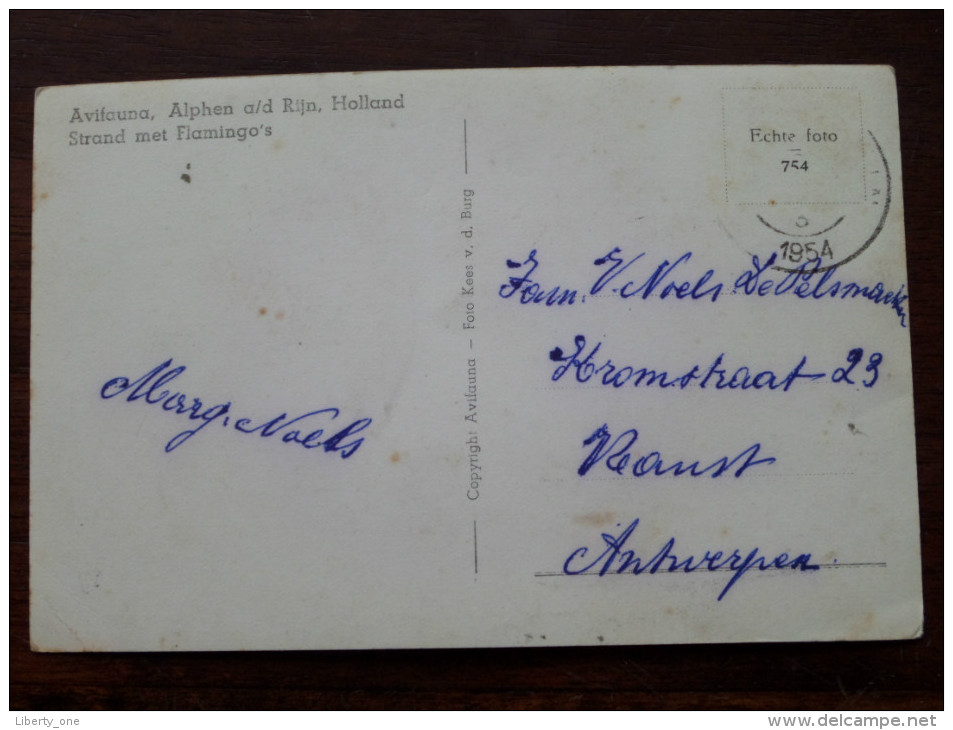 Avifauna, Alphen a/d Rijn, Holland
Strand met Flamingo's
Echte foto
754
1954
Copyright Avifauna — Foto Kees v. d. Burg
Fam. V. Noels De Pelsmaeker
Kromstraat 23
Ranst
Antwerpen.
Marg. Noels
Liberty_one
www.delcampe.net